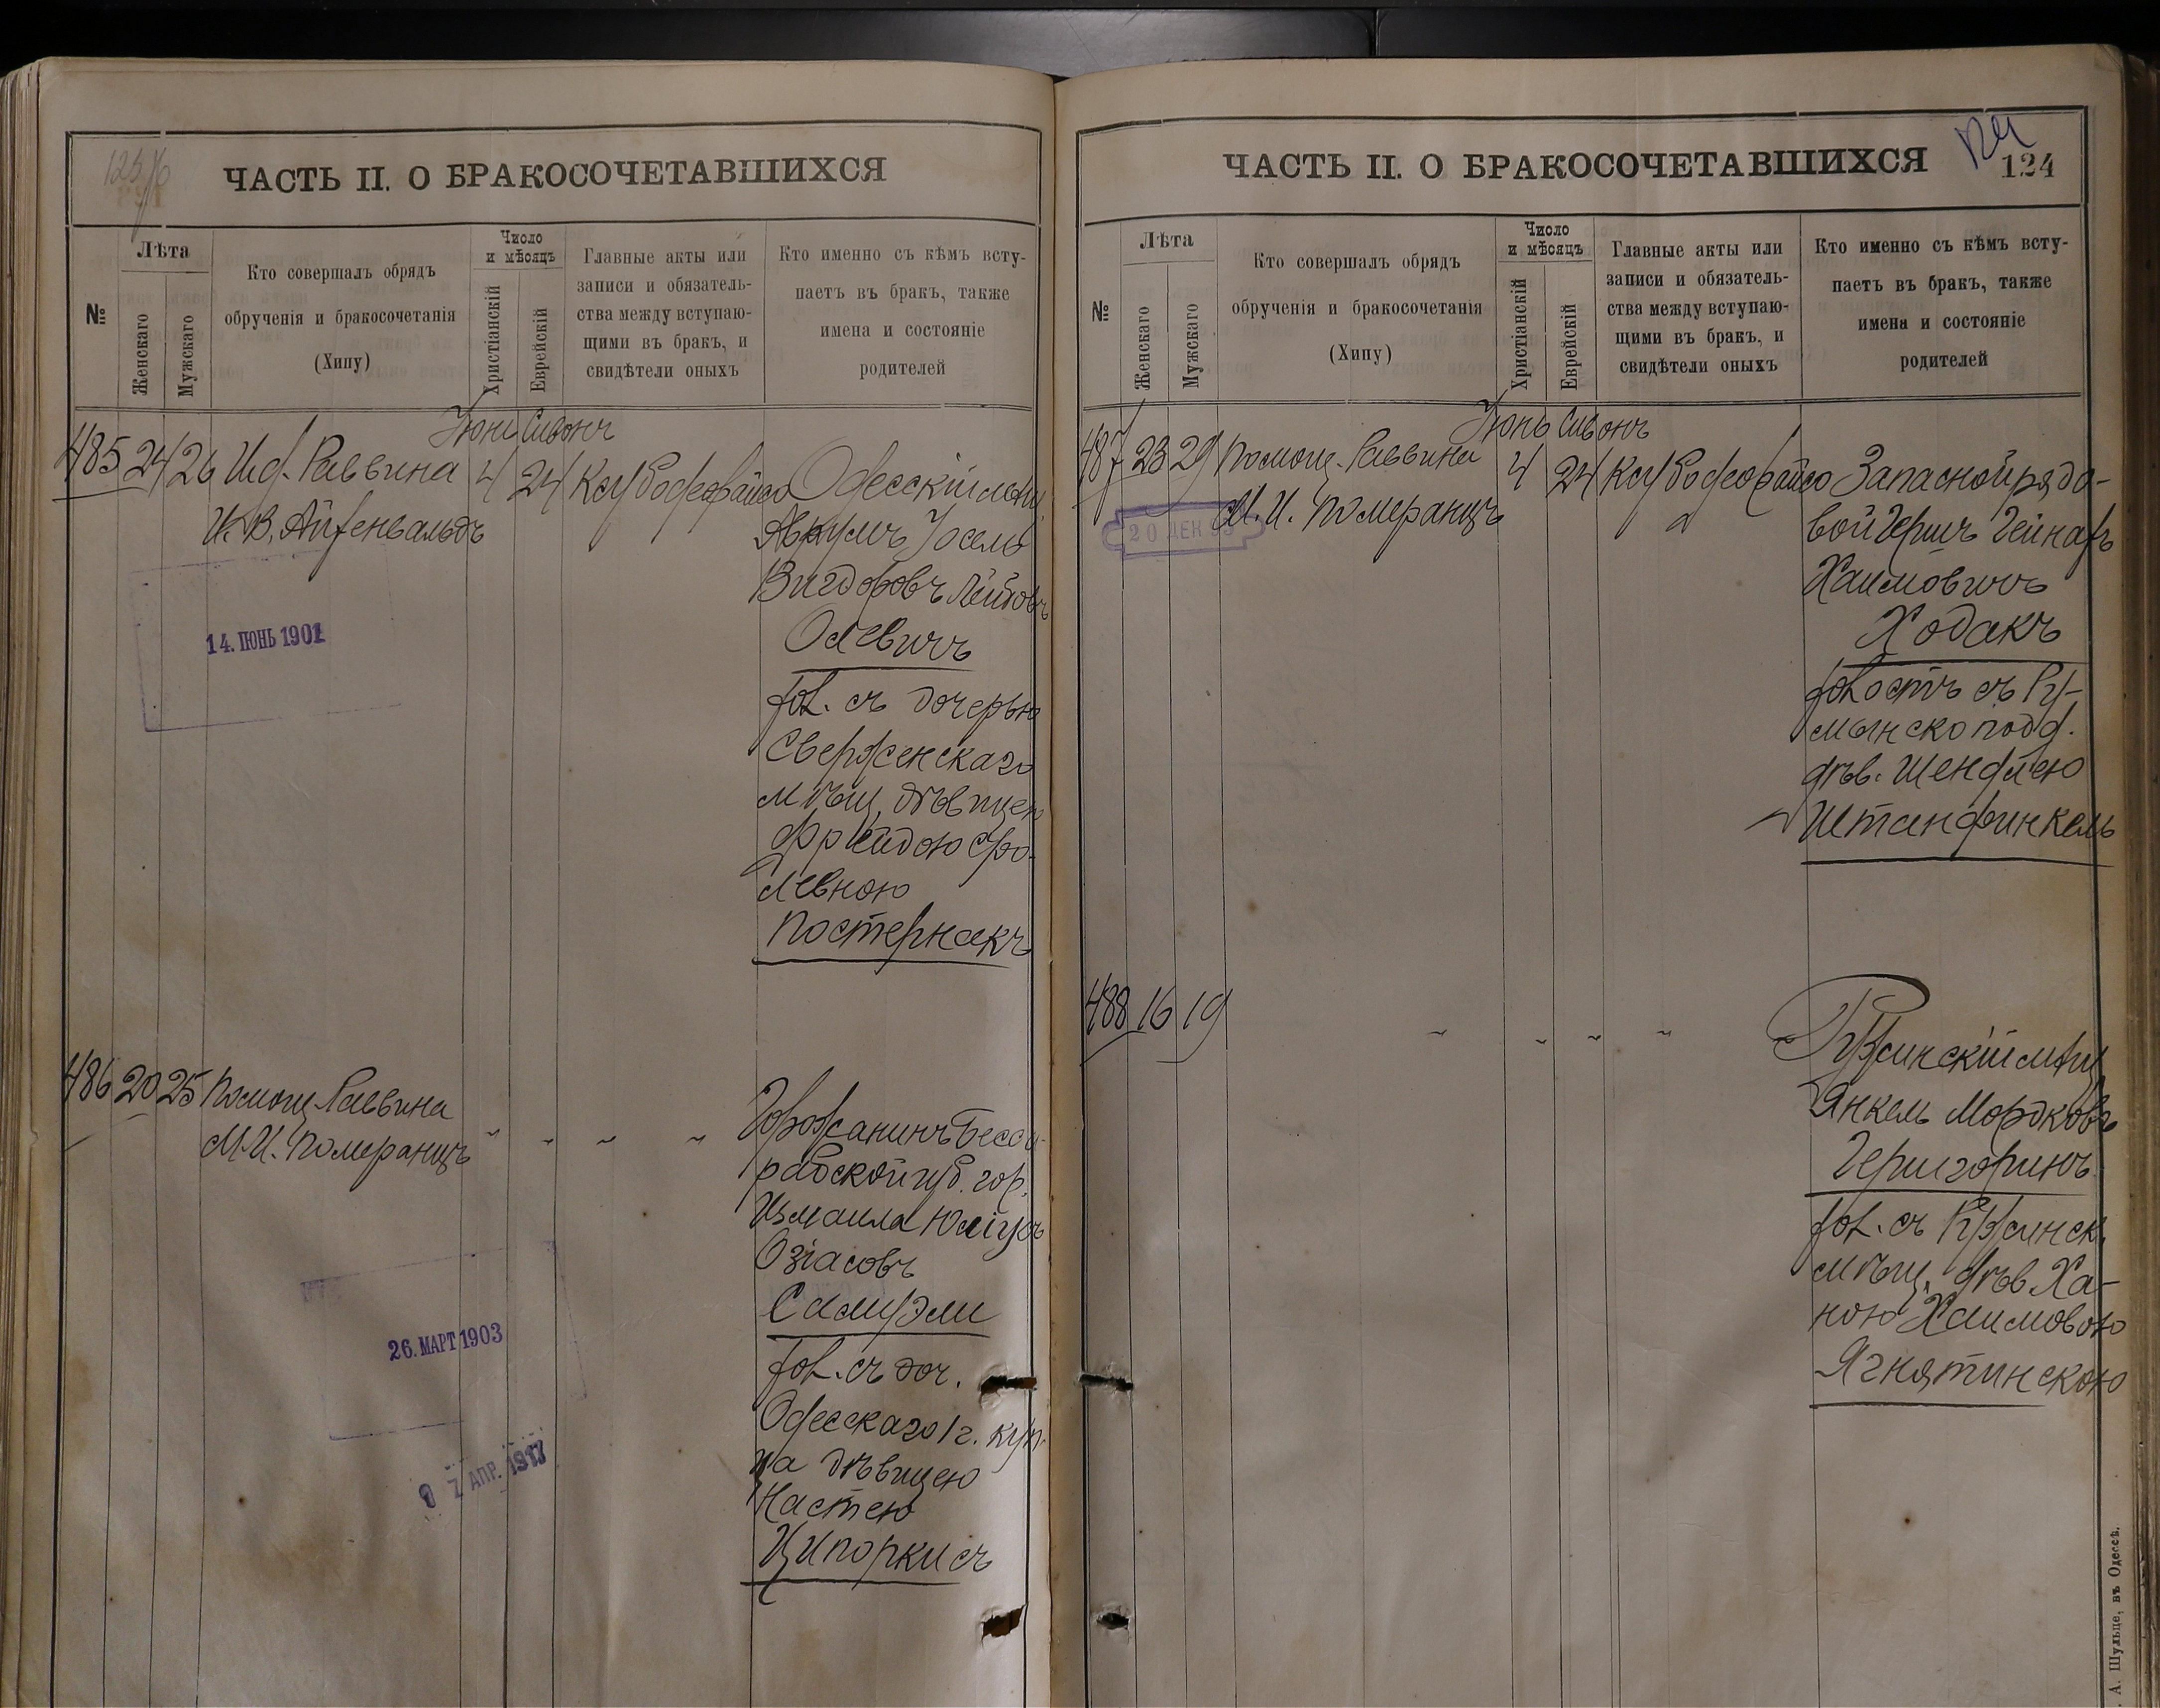 ЧАСТЬ II. О БРАКОСОЧЕТАВШИХСЯ
№
Лѣта
Женскаго
Мужскаго
Кто совершалъ обрядъ
обрученія и бракосочетанія
(Хипу)
Число
и мѣсяцъ
Христіанскій
Еврейскій
Главные акты или
записи и обязатель-
ства между вступаю-
щими въ бракъ, и
свидѣтели оныхъ
Кто именно съ кѣмъ всту-
паетъ въ бракъ, также
имена и состояніе
родителей
Іюнь Сивонъ
485 24 26 Исд. Раввина 4 24
И. В. Айзенвальдъ
Одесскій мѣщ.
Авкумъ Іосель
Вигдоровъ Лейбовъ
Олевичъ
хол. съ дочерью
Сверженскаго
мѣщ. дѣвицею
Фрейдою Сро-
левною
Постернакъ
14. ІЮНЬ 1901
486 20 25 Помощ. Раввина
М. И. Померанцъ
Горожанинъ Бесса-
рабской губ. гор.
Измаила Юліусъ
Озіасовъ
Самуэли
хол. съ доч.
Одесскаго 1 г. куп-
ца дѣвицею
Настею
Ципоркисъ
26. МАРТ 1903
7 АПР. 1917
ЧАСТЬ II. О БРАКОСОЧЕТАВШИХСЯ
124
№
Лѣта
Женскаго
Мужскаго
Кто совершалъ обрядъ
обрученія и бракосочетанія
(Хипу)
Число
и мѣсяцъ
Христіанскій
Еврейскій
Главные акты или
записи и обязатель-
ства между вступаю-
щими въ бракъ, и
свидѣтели оныхъ
Кто именно съ кѣмъ всту-
паетъ въ бракъ, также
имена и состояніе
родителей
Іюнь Сивонъ
487 23 29 Помощ. Раввина 4 24
М. И. Померанцъ
20 ДЕК
Запасной рядо-
вой Гершъ Гейнахъ
Хаимовичъ
Ходакъ
холостъ съ Ру-
мынско подд.
дѣв. Шендлею
Штанфинкель
488 16 19
Ржсинскій мѣщ.
Янкель Мордковъ
Геришоринъ
хол. съ Ржсинск.
мѣщ. дѣв. Ха-
ною Хаимовою
Ягнятинскою
А. Шульце, въ Одессѣ.